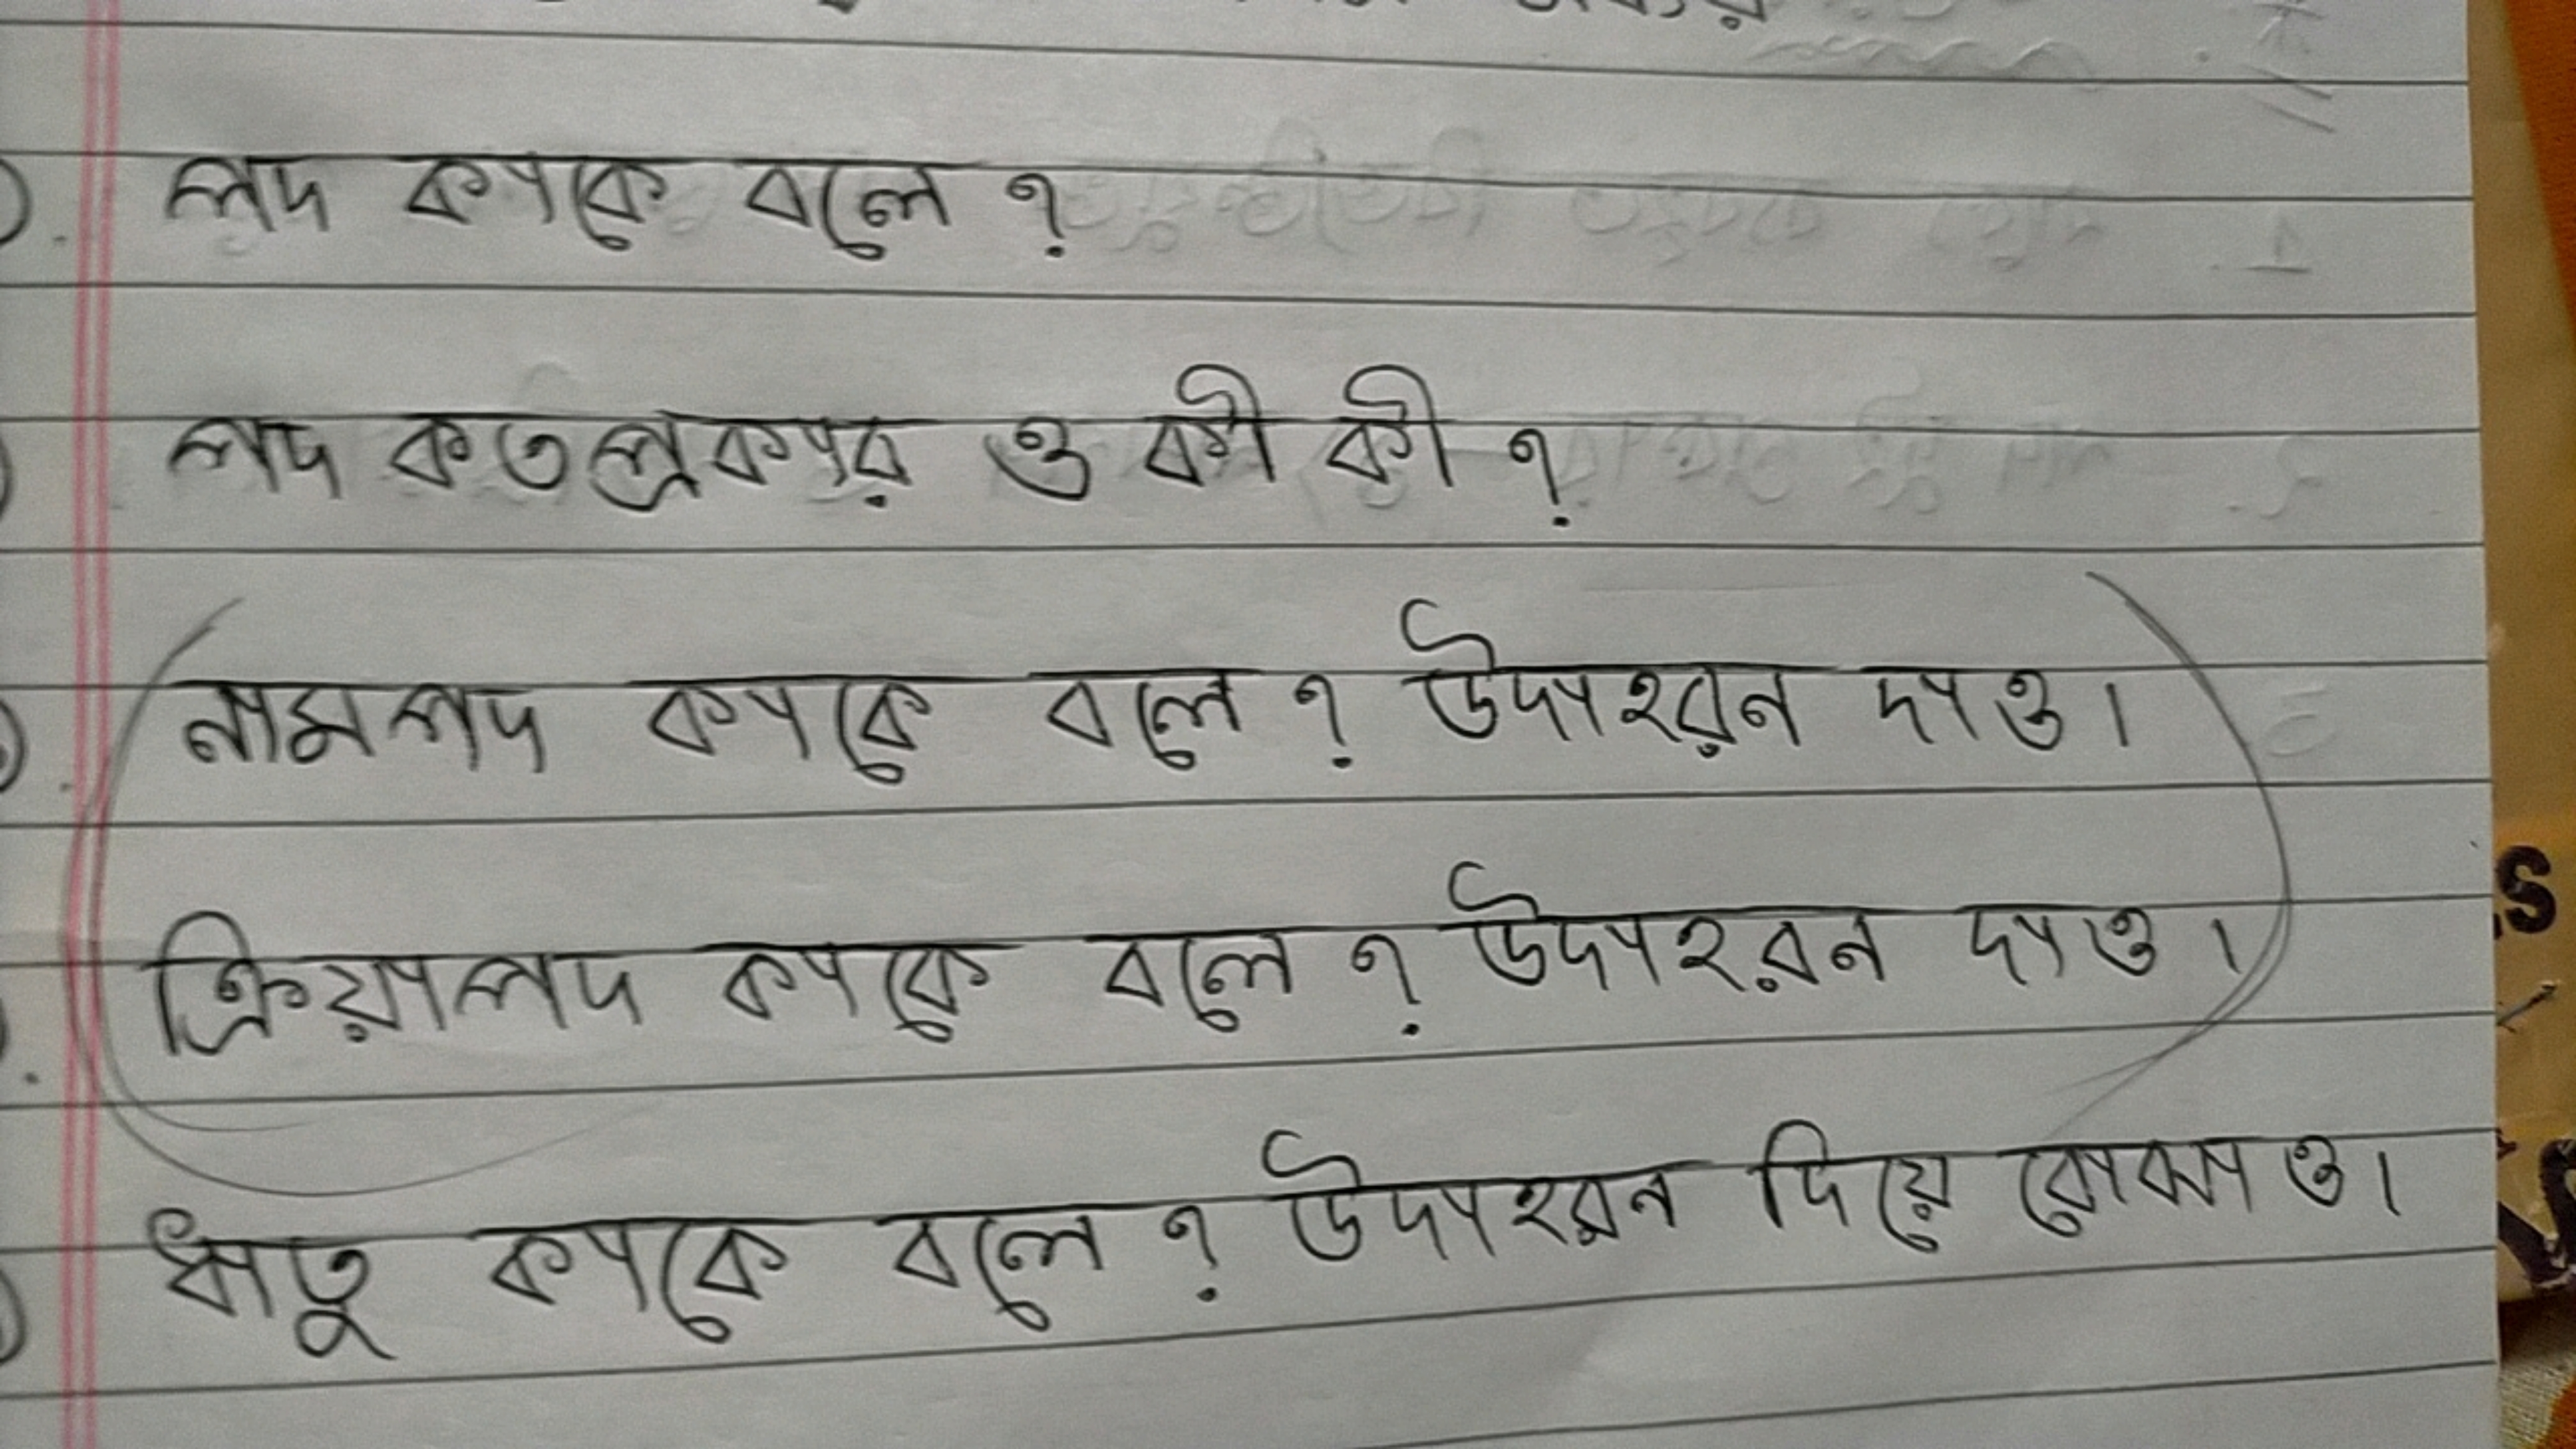 পদ কাকে বলে ?
পদ কতপ্রকার ও কী কী ?
নামপদ কাকে বলে ? উদাহরন দাও।
ক্রিয়াপদ কাকে বলে ? উদাহরন দাও।
ধাতু কাকে বলে ? উদাহরন দিয়ে বোঝাও।